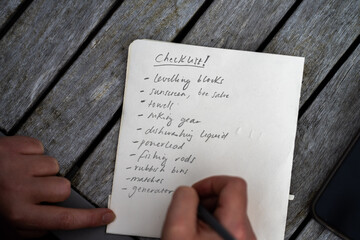 Checklist!
- levelling blocks
- sunscreen, bee sabre
- towels
- hiking gear
- dishwashing liquid
- powerlead
- fishing rods
- rubbish bins
- matches
- generator